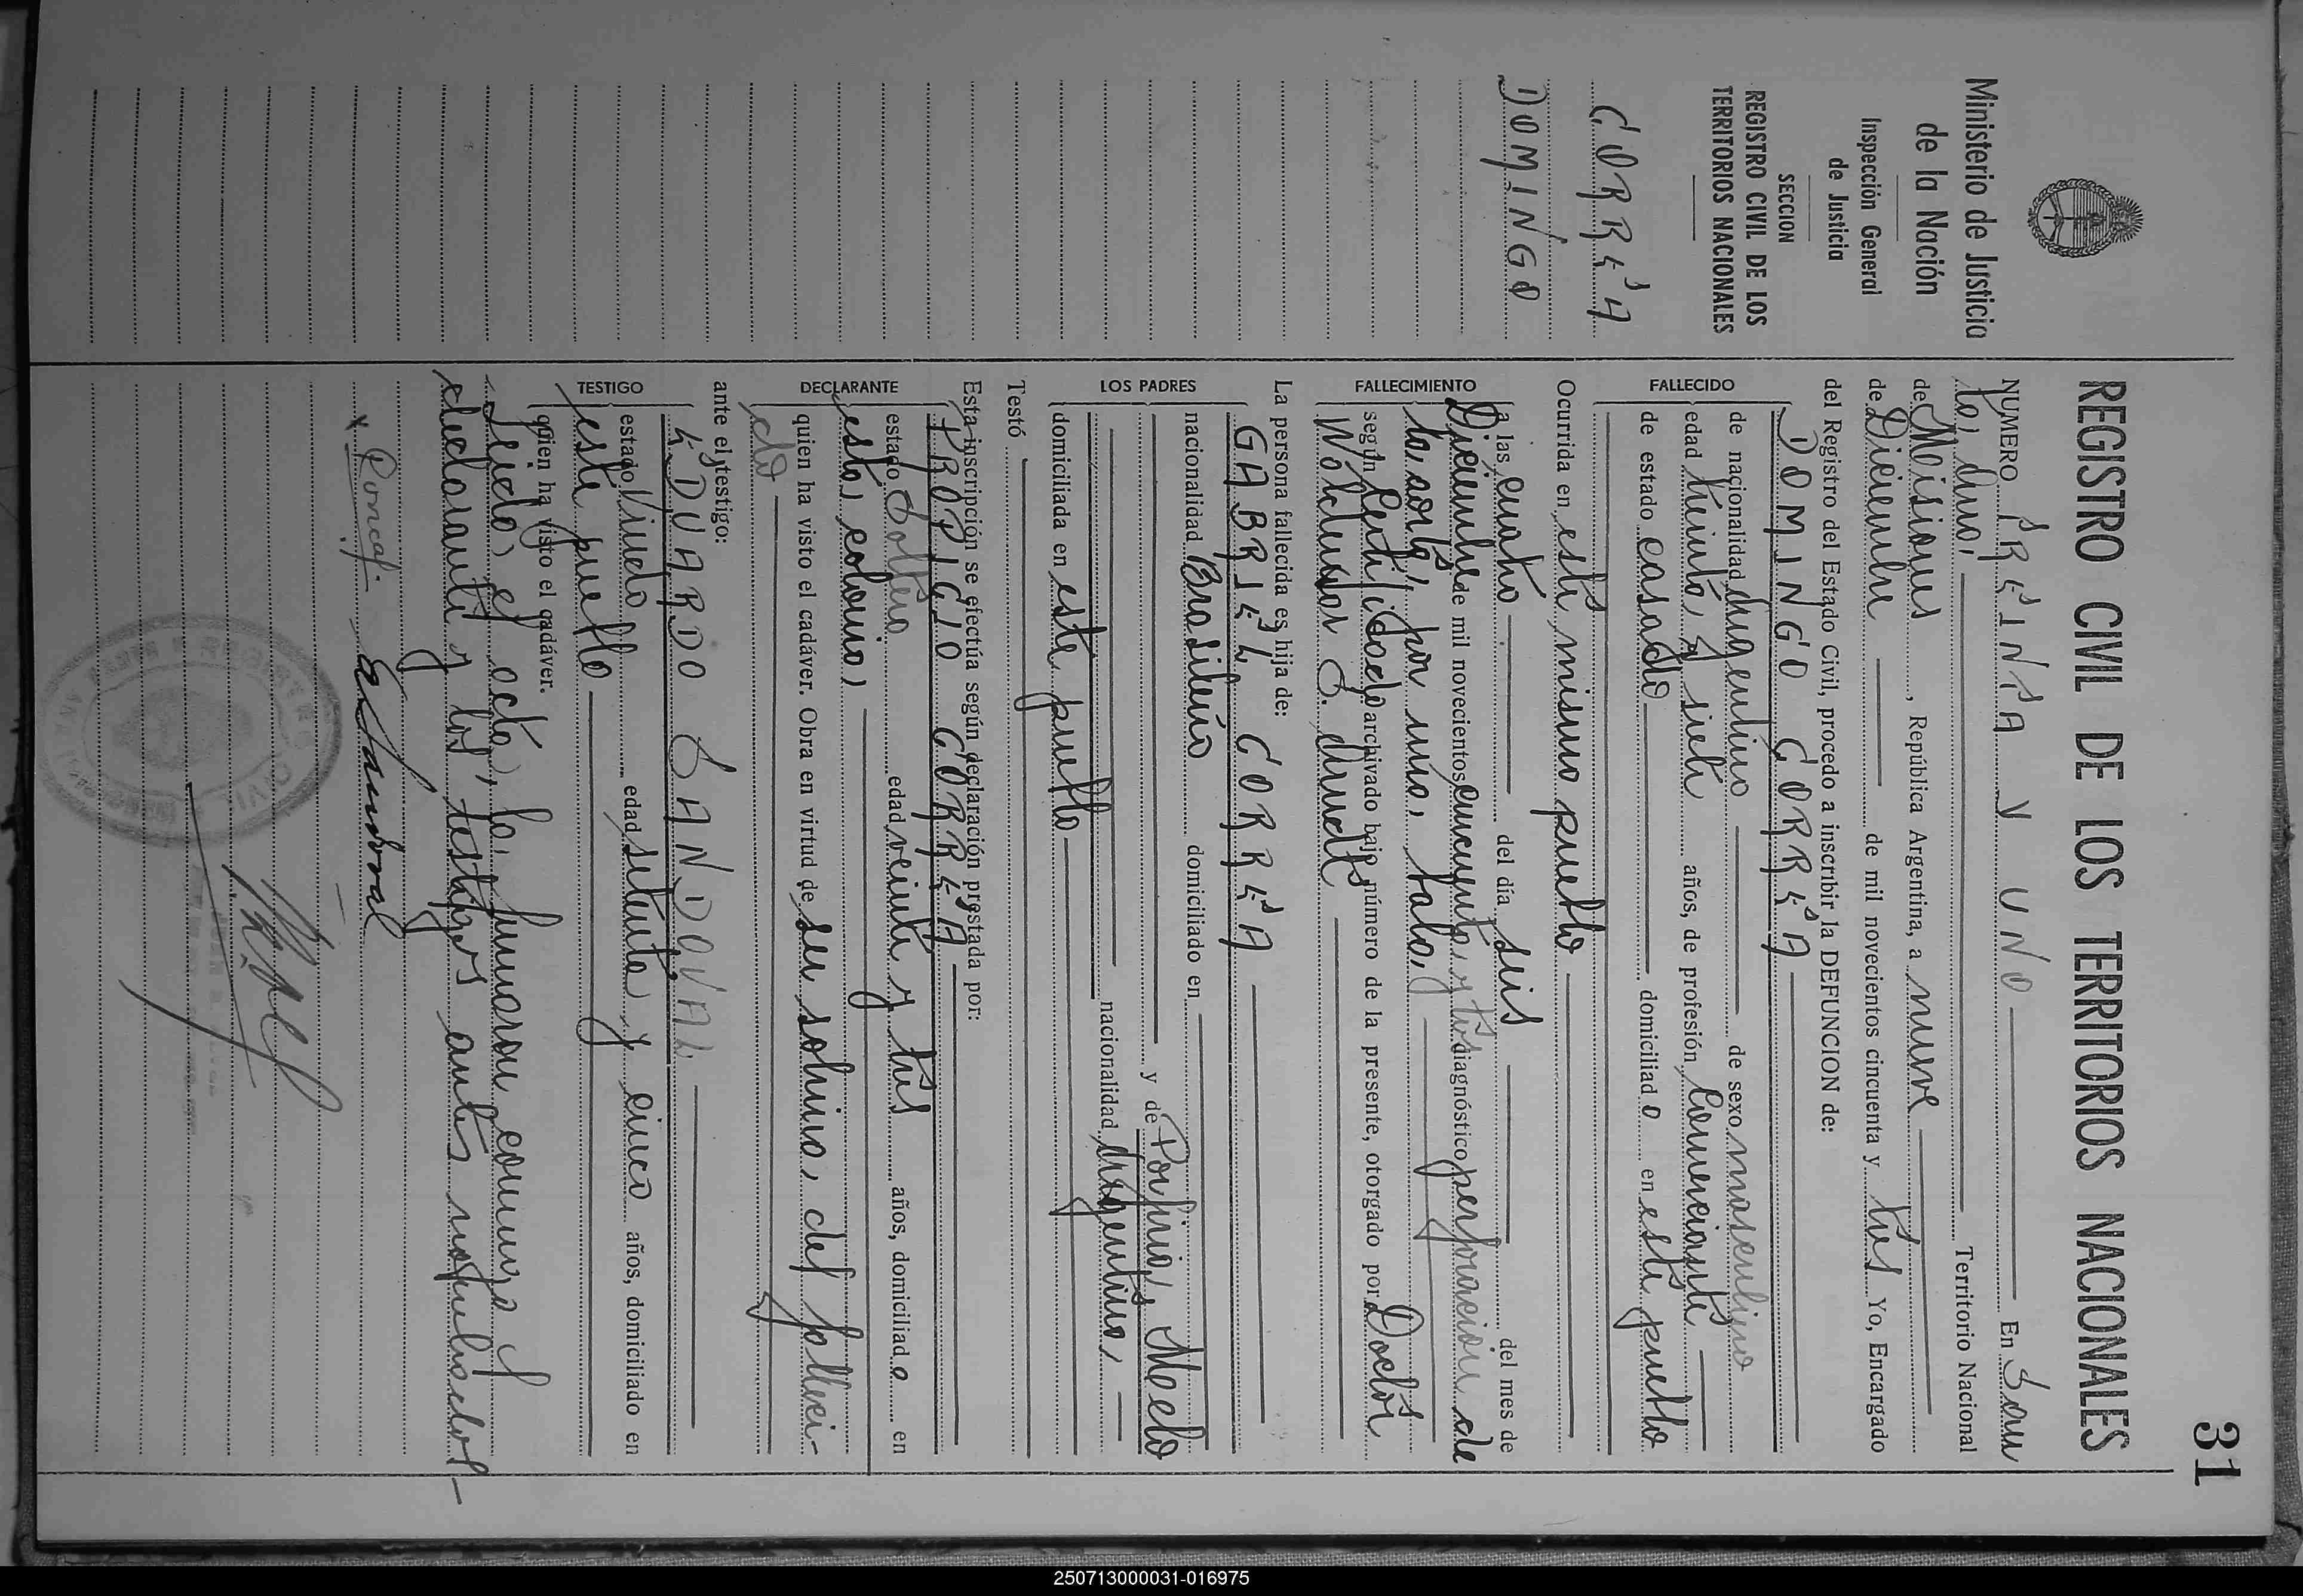 31
REGISTRO CIVIL DE LOS TERRITORIOS NACIONALES
Ministerio de Justicia
de la Nación
Inspección General
de Justicia
SECCION
REGISTRO CIVIL DE LOS
TERRITORIOS NACIONALES
CORREA
DOMINGO
NUMERO TREINTA Y UNO En San
Territorio Nacional
de Misiones, República Argentina, a nueve
de Diciembre de mil novecientos cincuenta y tres Yo, Encargado
del Registro del Estado Civil, procedo a inscribir la DEFUNCION de:
FALLECIDO
DOMINGO CORREA
de nacionalidad Argentino de sexo masculino
edad treinta y siete años, de profesión Comerciante
de estado casado domiciliado en este pueblo
Ocurrida en este mismo pueblo
FALLECIMIENTO
a las cuatro del día seis del mes de
Diciembre de mil novecientos cincuenta y tres diagnóstico perforación de
la aorta, por una bala,
según Certificado archivado bajo número de la presente, otorgado por Doctor
La persona fallecida es hija de:
LOS PADRES
GABRIEL CORREA
nacionalidad Brasilero domiciliado en
y de Porfiria Melo
nacionalidad Argentina,
domiciliada en este pueblo
Testó
Esta inscripción se efectúa según declaración prestada por:
DECLARANTE
PRODIGIO CORREA
estado Soltero edad veinte y tres años, domiciliado en
esta colonia,
quien ha visto el cadáver. Obra en virtud de su sobrino, del falleci-
do
ante el testigo:
TESTIGO
EDUARDO SANDOVAL
estado Viudo edad setenta y cinco años, domiciliado en
este pueblo
quien ha visto el cadáver.
Leida el acta, la firmaron conmigo el
declarante y los testigos antes nombrados
E. Sandoval
250713000031-016975